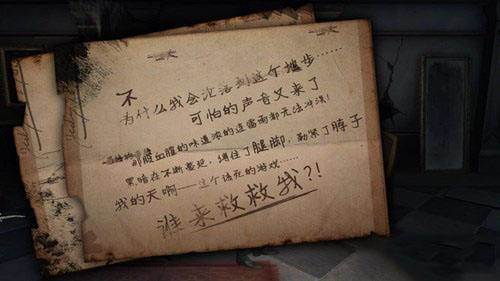 不
为什么我会沦落到这个地步……
可怕的声音又来了
那股血腥的味道浓的连雷雨都无法冲淡！
黑暗在不断蔓延，缚住了腿脚，勒紧了脖子
我的天啊——这个该死的游戏……
谁来救救我？！